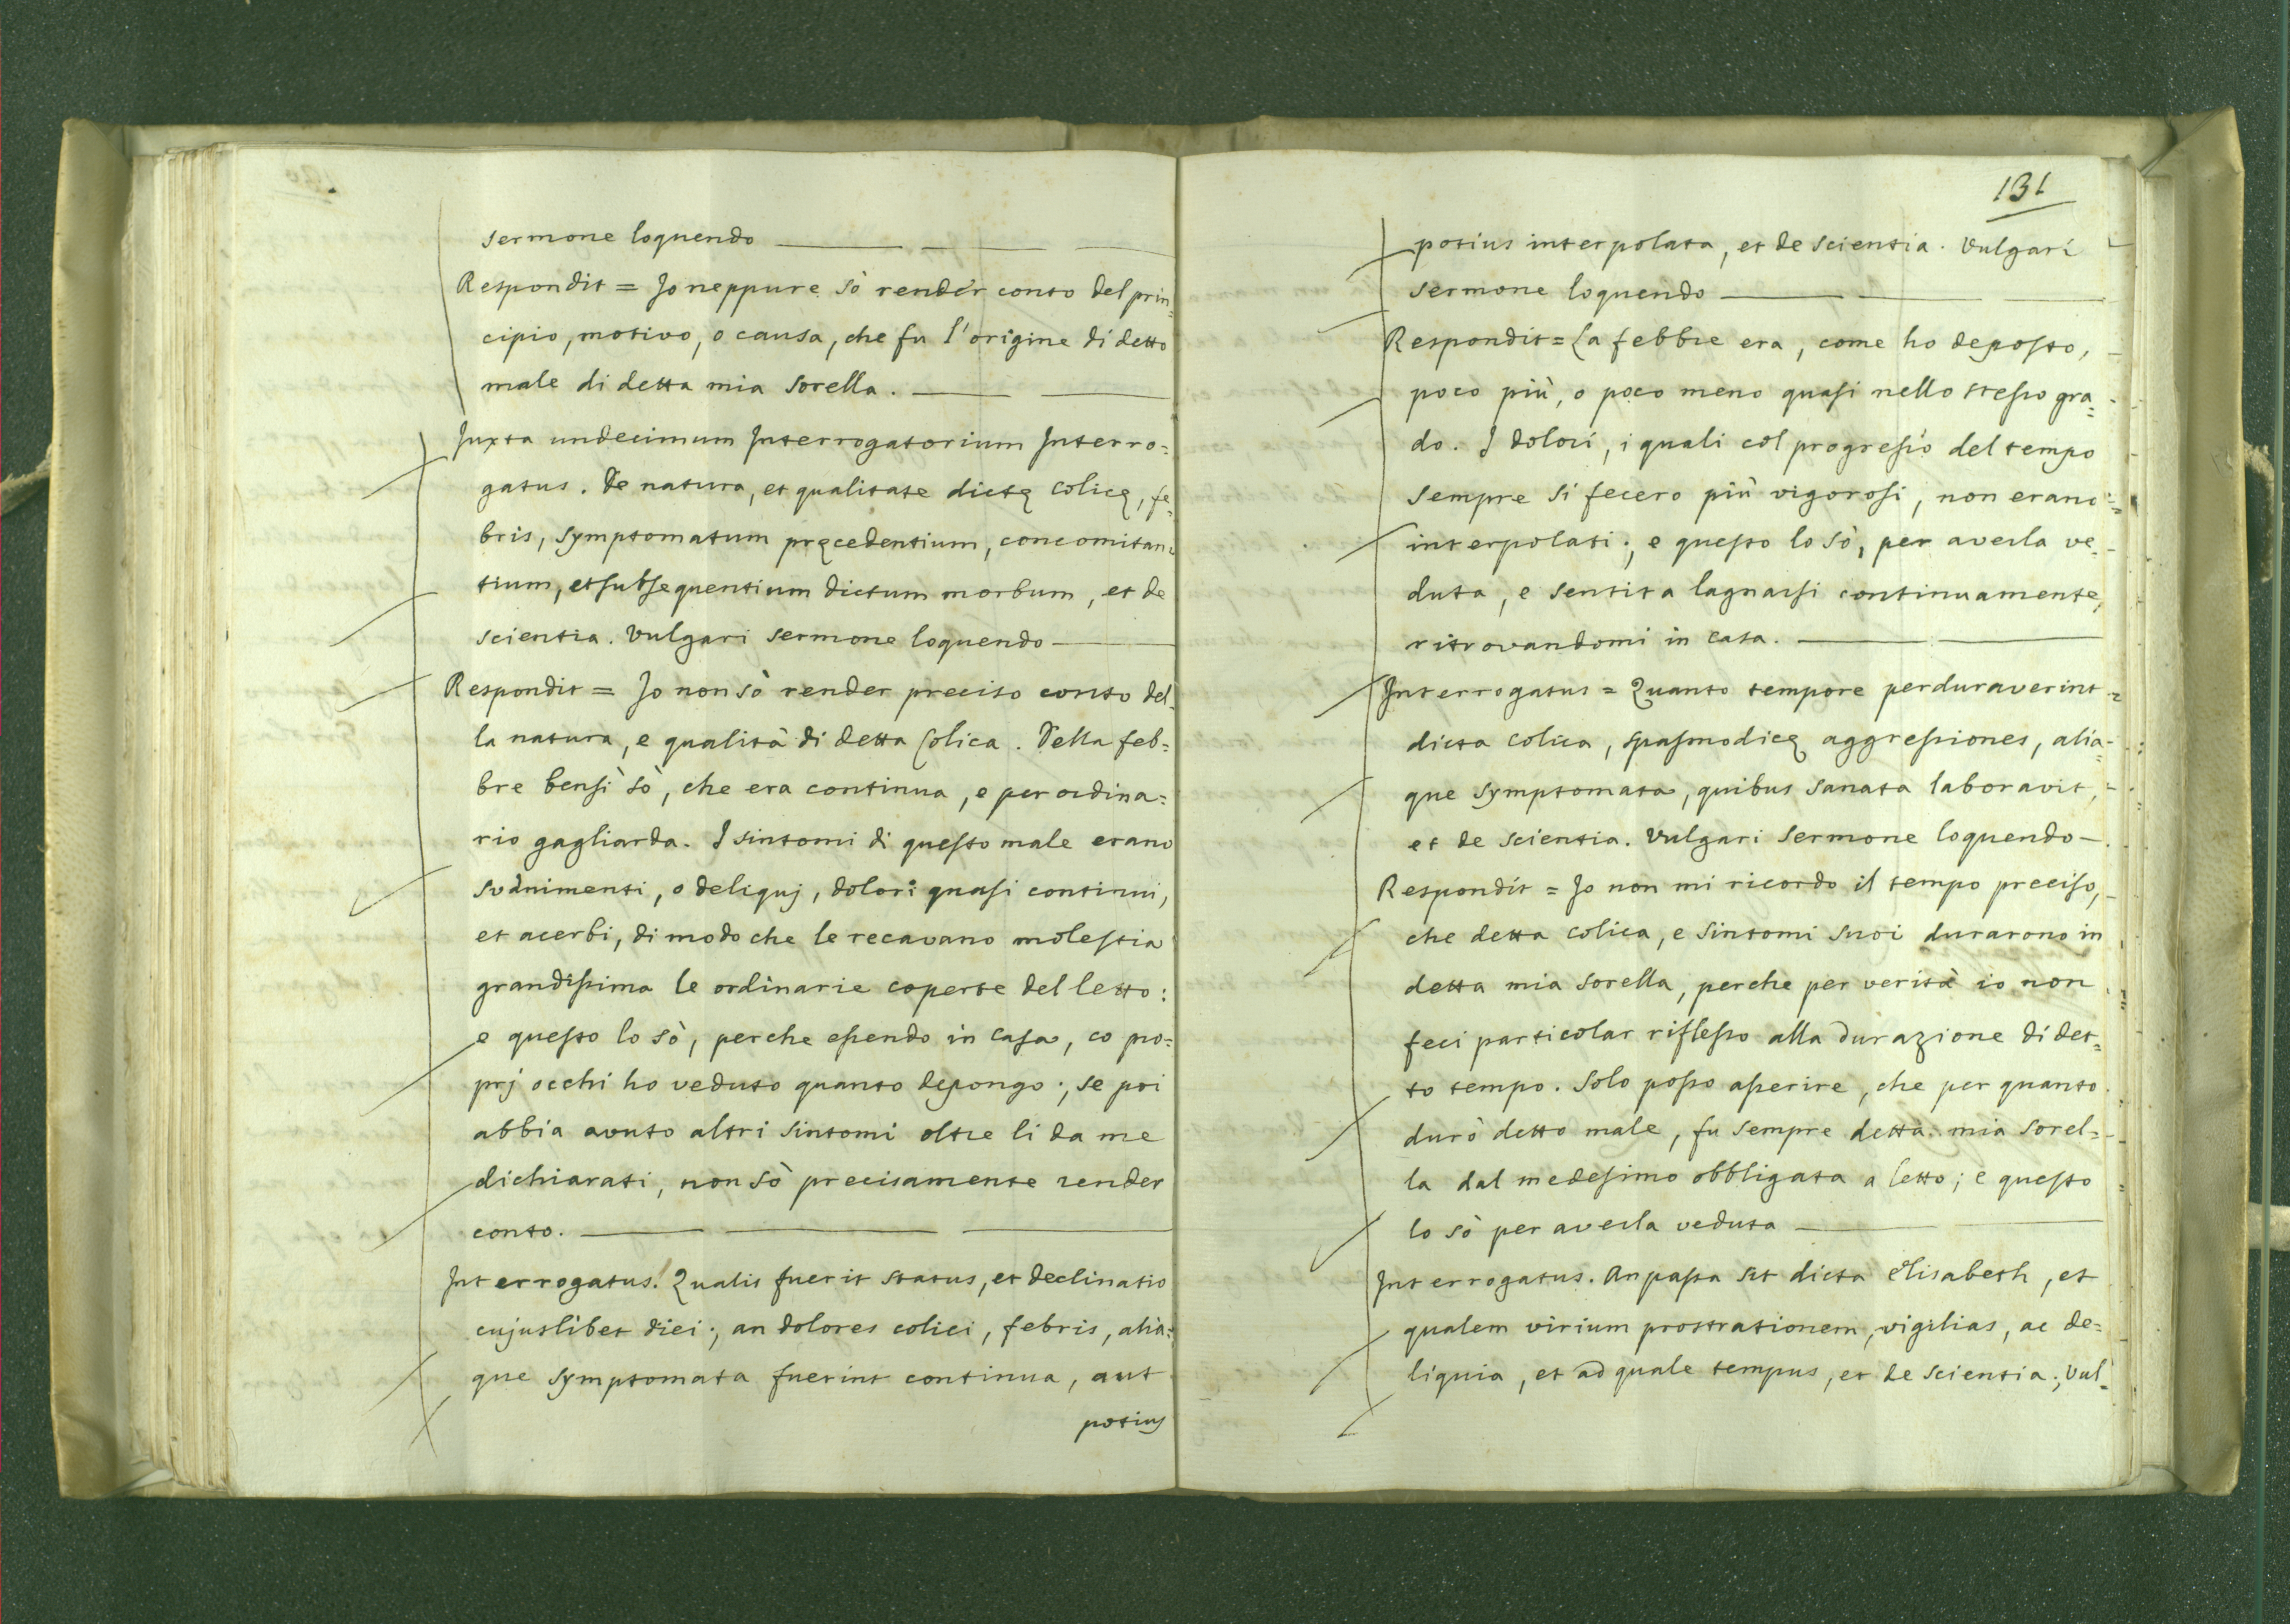 sermone loquendo
Respondit = Jo neppure sò render conto del prin=
cipio, motivo, o causa, che fu l'origine di detto
male di detta mia sorella.
Juxta undecimum Interrogatorium Interro=
gatus. De natura, et qualitate dictę colicę, fe=
bris, symptomatum pręcedentium, concomitan=
tium, et subsequentium dictum morbum, et de
scientia. Vulgari sermone loquendo
Respondit = Jo non sò render preciso conto del=
la natura, e qualità di detta Colica. Della feb=
bre bensì sò, che era continua, e per ordina=
rio gagliarda. I sintomi di questo male erano
svanimenti, o deliquj, dolori quasi continui,
et acerbi, di modo che le recavano molestia
grandissima le ordinarie coperte del letto:
e questo lo sò, perche essendo in Casa, co pro=
prj occhi ho veduto quanto depongo; se poi
abbia avuto altri sintomi oltre li da me
dichiarati, non sò precisamente render
conto.
Interrogatus. Qualis fuerit status, et declinatio
cujuslibet diei; an dolores colici, febris, alia=
que symptomata fuerint continua, aut
potius
131
potius interpolata, et de scientia. Vulgari
sermone loquendo
Respondit = La febbre era, come ho deposto,
poco più, o poco meno quasi nello stesso gra=
do. I dolori, i quali col progresso del tempo
sempre si fecero più vigorosi, non erano
interpolati; e questo lo sò, per averla ve=
duta, e sentita lagnarsi continuamente,
ritrovandomi in casa.
Interrogatus = Quanto tempore perduraverint
dicta colica, spasmodicę aggressiones, alia=
que symptomata, quibus sanata laboravit,
et de scientia. Vulgari sermone loquendo
Respondit = Jo non mi ricordo il tempo preciso,
che detta colica, e sintomi suoi durarono in
detta mia sorella, perche per verità io non
feci particolar riflesso alla durazione di det=
to tempo. Solo posso asserire, che per quanto
durò detto male, fu sempre detta mia sorel=
la dal medesimo obbligata a letto; e questo
lo sò per averla veduta
Interrogatus. An passa sit dicta Elisabeth, et
qualem virium prostrationem, vigilias, ac de=
liquia, et ad quale tempus, et de scientia; Vul=